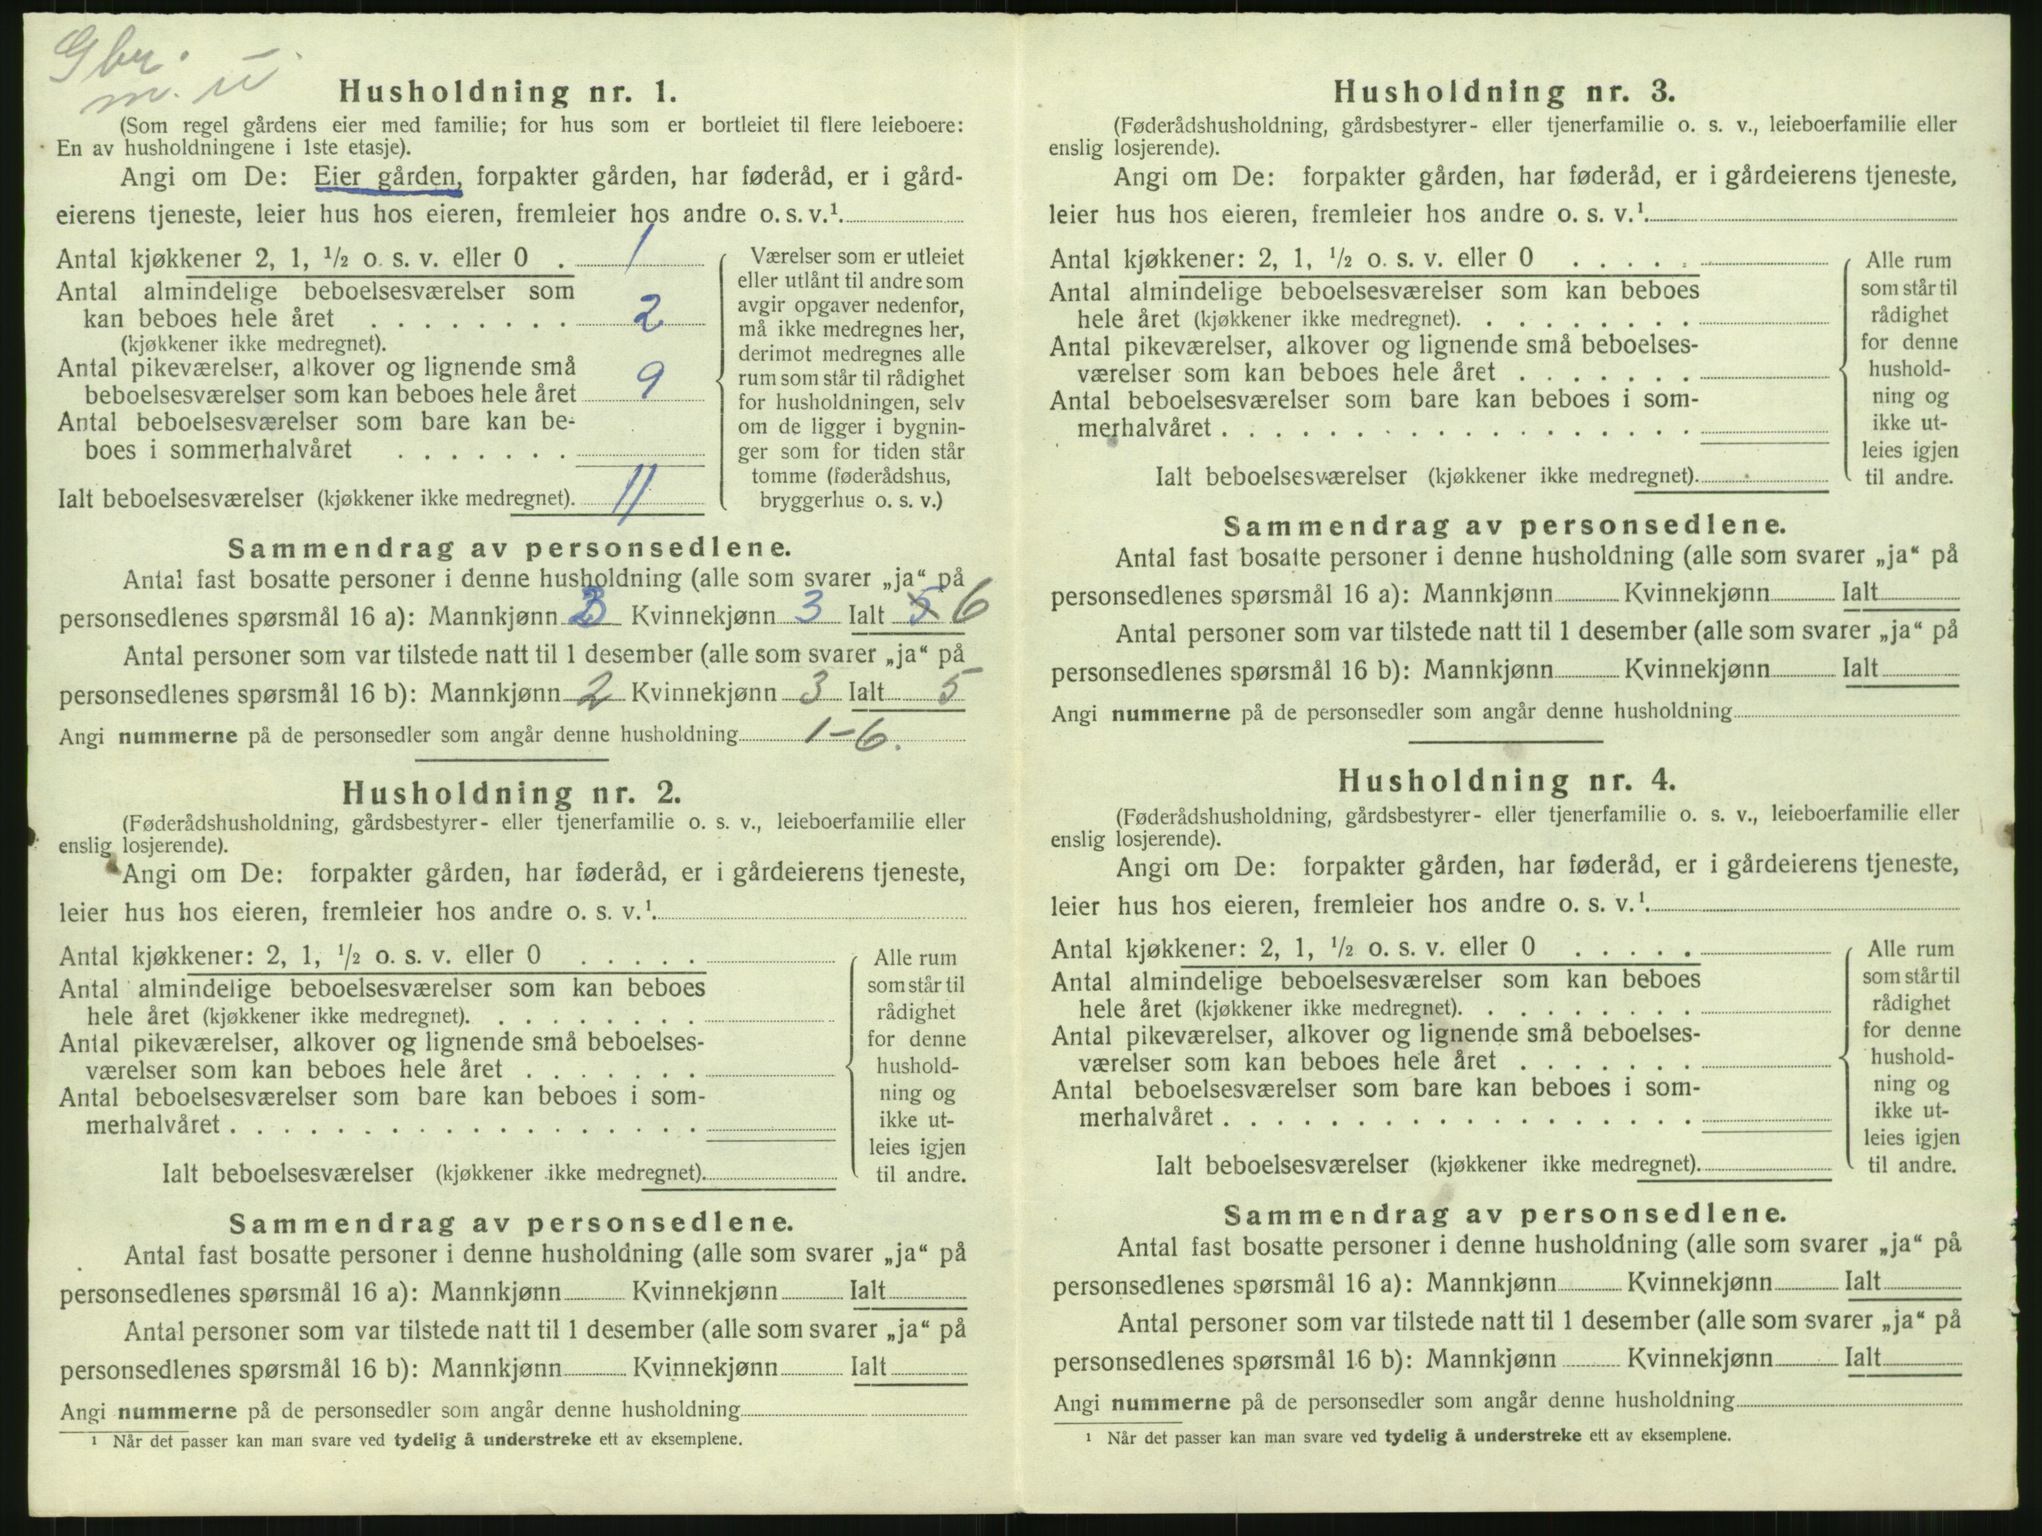 Gbr.
m. u.
Husholdning nr. 1.
(Som regel gårdens eier med familie; for hus som er bortleiet til flere leieboere:
En av husholdningene i 1ste etasje).
Angi om De: Eier gården, forpakter gården, har føderåd, er i gård-
eierens tjeneste, leier hus hos eieren, fremleier hos andre o. s. v.¹
Antal kjøkkener 2, 1, ½ o. s. v. eller 0 . 1
Antal almindelige beboelsesværelser som
kan beboes hele året . . . . . . . . 2
(kjøkkener ikke medregnet).
Antal pikeværelser, alkover og lignende små
beboelsesværelser som kan beboes hele året 9
Antal beboelsesværelser som bare kan be-
boes i sommerhalvåret . . . . . . .
Ialt beboelsesværelser (kjøkkener ikke medregnet). 11
Værelser som er utleiet
eller utlånt til andre som
avgir opgaver nedenfor,
må ikke medregnes her,
derimot medregnes alle
rum som står til rådighet
for husholdningen, selv
om de ligger i bygnin-
ger som for tiden står
tomme (føderådshus,
bryggerhus o. s. v.)
Sammendrag av personsedlene.
Antal fast bosatte personer i denne husholdning (alle som svarer „ja“ på
personsedlenes spørsmål 16 a): Mannkjønn 3 Kvinnekjønn 3 Ialt 5 6
Antal personer som var tilstede natt til 1 desember (alle som svarer „ja“ på
personsedlenes spørsmål 16 b): Mannkjønn 2 Kvinnekjønn 3 Ialt 5
Angi nummerne på de personsedler som angår denne husholdning 1-6.
Husholdning nr. 2.
(Føderådshusholdning, gårdsbestyrer- eller tjenerfamilie o. s. v., leieboerfamilie eller
enslig losjerende).
Angi om De: forpakter gården, har føderåd, er i gårdeierens tjeneste,
leier hus hos eieren, fremleier hos andre o. s. v.¹
Antal kjøkkener: 2, 1, ½ o. s. v. eller 0 . . . . .
Antal almindelige beboelsesværelser som kan beboes
hele året (kjøkkener ikke medregnet). . . . . . . . .
Antal pikeværelser, alkover og lignende små beboelses-
værelser som kan beboes hele året . . . . . . .
Antal beboelsesværelser som bare kan beboes i som-
merhalvåret . . . . . . . . . . . . . . . . . .
Ialt beboelsesværelser (kjøkkener ikke medregnet).
Alle rum
som står til
rådighet
for denne
hushold-
ning og
ikke ut-
leies igjen
til andre.
Sammendrag av personsedlene.
Antal fast bosatte personer i denne husholdning (alle som svarer „ja“ på
personsedlenes spørsmål 16 a): Mannkjønn Kvinnekjønn Ialt
Antal personer som var tilstede natt til 1 desember (alle som svarer „ja“ på
personsedlenes spørsmål 16 b): Mannkjønn Kvinnekjønn Ialt
Angi nummerne på de personsedler som angår denne husholdning
¹ Når det passer kan man svare ved tydelig å understreke ett av eksemplene.
Husholdning nr. 3.
(Føderådshusholdning, gårdsbestyrer- eller tjenerfamilie o. s. v., leieboerfamilie eller
enslig losjerende).
Angi om De: forpakter gården, har føderåd, er i gårdeierens tjeneste,
leier hus hos eieren, fremleier hos andre o. s. v.¹
Antal kjøkkener: 2, 1, ½ o. s. v. eller 0 . . . . .
Antal almindelige beboelsesværelser som kan beboes
hele året (kjøkkener ikke medregnet). . . . . . . . .
Antal pikeværelser, alkover og lignende små beboelses-
værelser som kan beboes hele året . . . . . . .
Antal beboelsesværelser som bare kan beboes i som-
merhalvåret . . . . . . . . . . . . . . . . . .
Ialt beboelsesværelser (kjøkkener ikke medregnet).
Alle rum
som står til
rådighet
for denne
hushold-
ning og
ikke ut-
leies igjen
til andre.
Sammendrag av personsedlene.
Antal fast bosatte personer i denne husholdning (alle som svarer „ja“ på
personsedlenes spørsmål 16 a): Mannkjønn Kvinnekjønn Ialt
Antal personer som var tilstede natt til 1 desember (alle som svarer „ja“ på
personsedlenes spørsmål 16 b): Mannkjønn Kvinnekjønn Ialt
Angi nummerne på de personsedler som angår denne husholdning
Husholdning nr. 4.
(Føderådshusholdning, gårdsbestyrer- eller tjenerfamilie o. s. v., leieboerfamilie eller
enslig losjerende).
Angi om De: forpakter gården, har føderåd, er i gårdeierens tjeneste,
leier hus hos eieren, fremleier hos andre o. s. v.¹
Antal kjøkkener: 2, 1, ½ o. s. v. eller 0 . . . . .
Antal almindelige beboelsesværelser som kan beboes
hele året (kjøkkener ikke medregnet). . . . . . . . .
Antal pikeværelser, alkover og lignende små beboelses-
værelser som kan beboes hele året . . . . . . .
Antal beboelsesværelser som bare kan beboes i som-
merhalvåret . . . . . . . . . . . . . . . . . .
Ialt beboelsesværelser (kjøkkener ikke medregnet).
Alle rum
som står til
rådighet
for denne
hushold-
ning og
ikke ut-
leies igjen
til andre.
Sammendrag av personsedlene.
Antal fast bosatte personer i denne husholdning (alle som svarer „ja“ på
personsedlenes spørsmål 16 a): Mannkjønn Kvinnekjønn Ialt
Antal personer som var tilstede natt til 1 desember (alle som svarer „ja“ på
personsedlenes spørsmål 16 b): Mannkjønn Kvinnekjønn Ialt
Angi nummerne på de personsedler som angår denne husholdning
¹ Når det passer kan man svare ved tydelig å understreke ett av eksemplene.